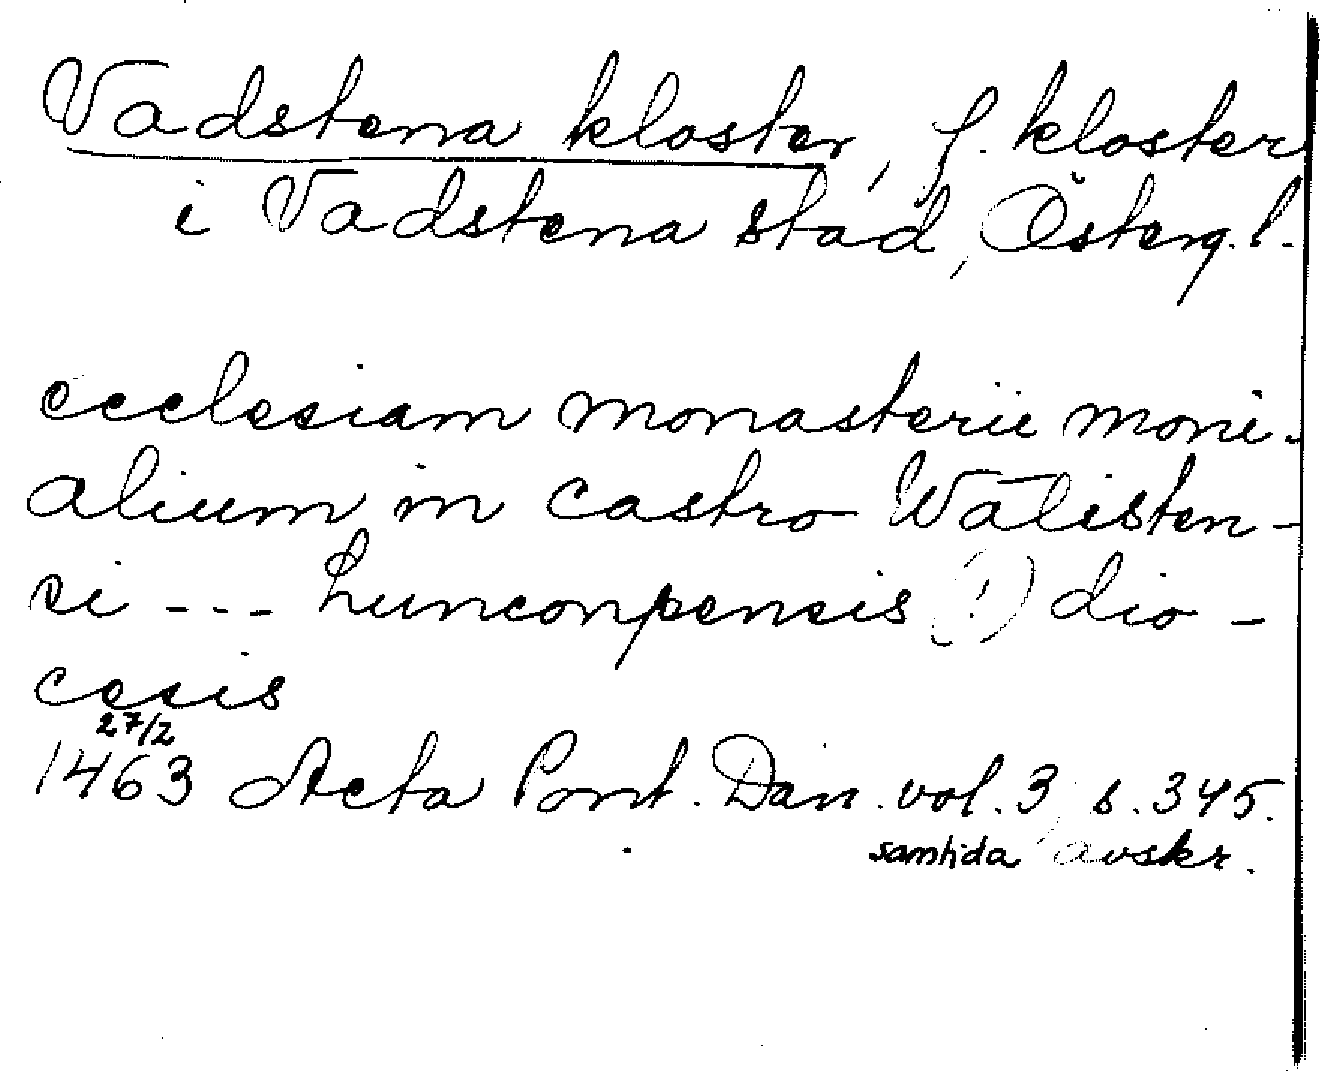 Vadstena kloster, f. kloster
i Vadstena stad, Österg. l.
ecclesiam monasterii moni-
alium in castro Walisten-
si --- Lunconpensis (!) dio-
cesis
27/2
1463 Acta Pont. Dan. vol. 3, s. 345.
samtida avskr.